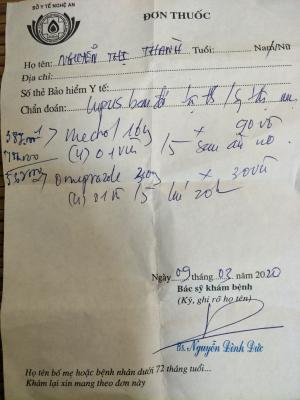 SỞ Y TẾ NGHỆ AN
ĐƠN THUỐC
Họ tên: NGUYỄN THỊ THANH Tuổi: Nam/Nữ
Địa chỉ:
Số thẻ Bảo hiểm Y tế:
Chẩn đoán: Lupus ban đỏ
16mg x 90 v
(U) 01 v /5 sau ăn no.
Omeprazole 20mg x 30 v
(U) 01 v /5 lúc 20h
Ngày 09 tháng 03 năm 2020
Bác sỹ khám bệnh
(Ký, ghi rõ họ tên)
BS. Nguyễn Đình Đức
Họ tên bố mẹ hoặc bệnh nhân dưới 72 tháng tuổi...
Khám lại xin mang theo đơn này